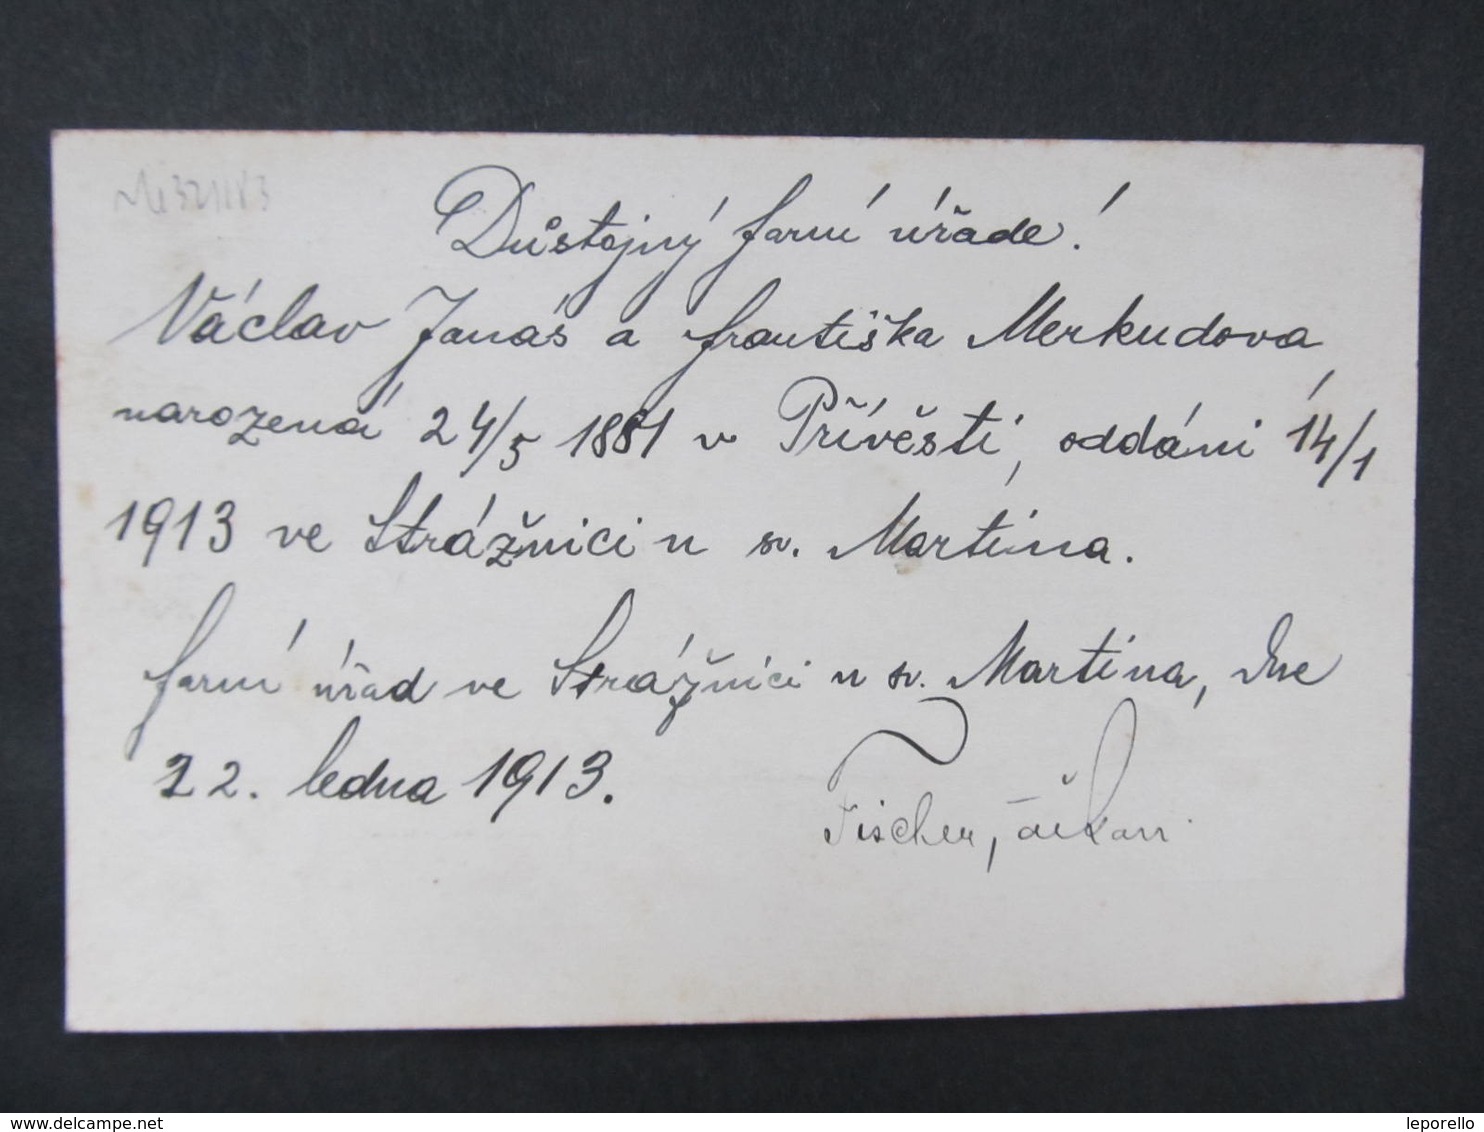 Důstojný farní úřade!
Václav Janáš a Františka Merkudova,
narozená 24/5 1881 v Přívěsti, oddáni 14/1
1913 ve Strážnici u sv. Martina.
Farní úřad ve Strážnici u sv. Martina, dne
22. ledna 1913.
Fischer, děkan
www.delcampe.net
leporello